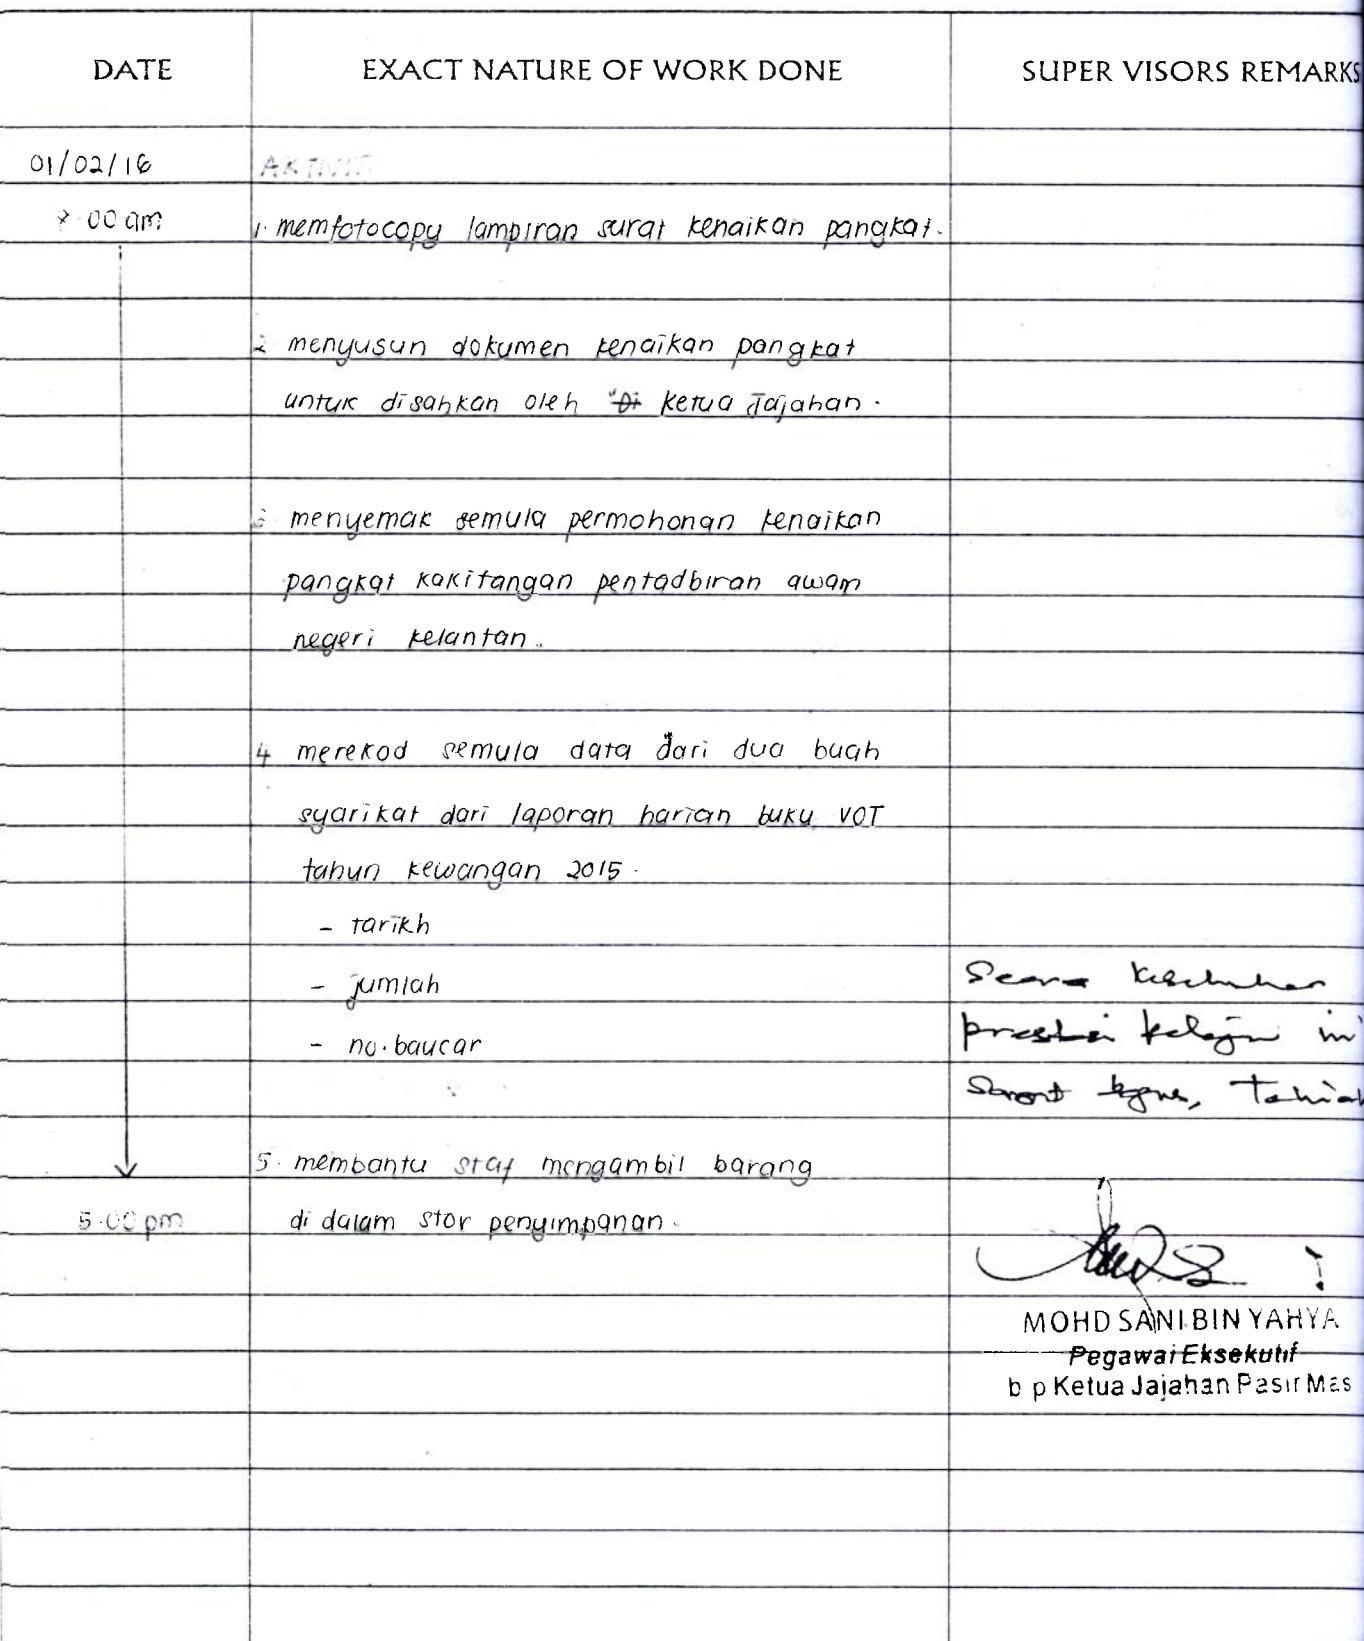 DATE EXACT NATURE OF WORK DONE SUPER VISORS REMARKS
01/02/16 AKTIVITI
00 am 1. memfotocopy lampiran surat kenaikan pangkat.
2 menyusun dokumen kenaikan pangkat
untuk disahkan oleh ketua Jajahan.
3 menyemak semula permohonan kenaikan
pangkat kakitangan pentadbiran awam
negeri kelantan.
4 merekod semula data dari dua buah
syarikat dari laporan harian buku VOT
tahun kewangan 2015.
- tarikh
- jumlah
- no. baucar
Secara keseluruhan
prestasi pelajar ini
5. membantu staf mengambil barang
5.00 pm di dalam stor penyimpanan.
MOHD SANI BIN YAHYA
Pegawai Eksekutif
b p Ketua Jajahan Pasir Mas